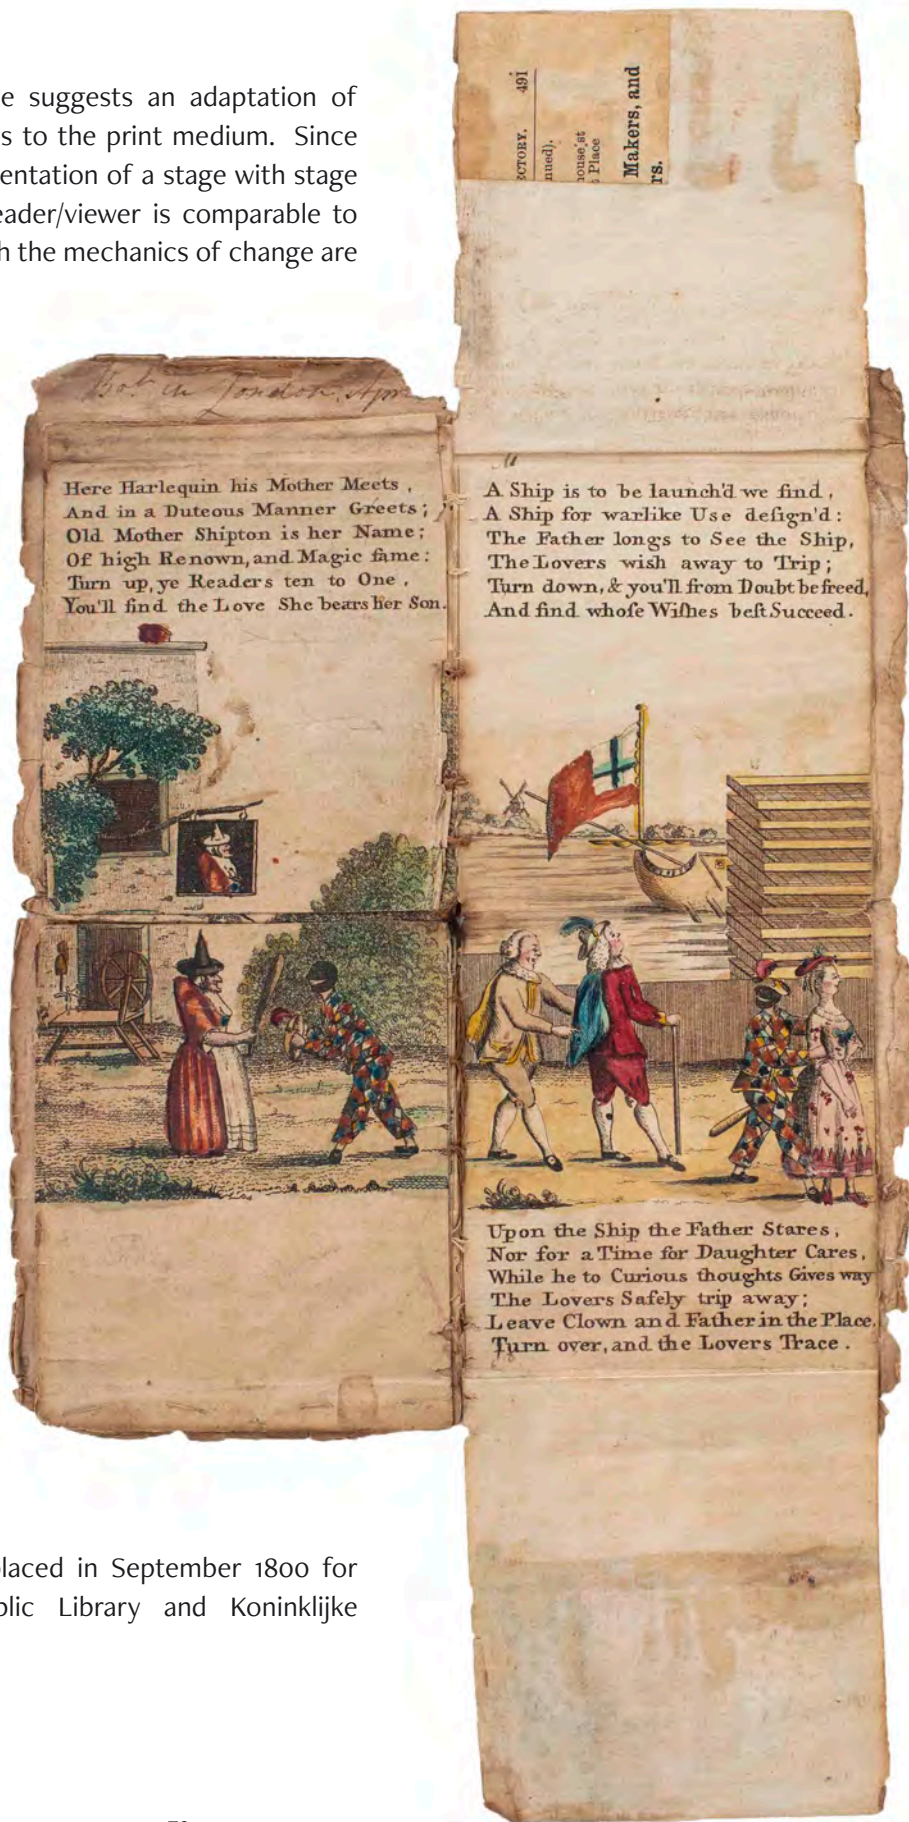 e suggests an adaptation of
s to the print medium. Since
entation of a stage with stage
eader/viewer is comparable to
h the mechanics of change are
ECTORY. 491
nued).
house st
Place
Makers, and
rs.
in London
Here Harlequin his Mother Meets,
And in a Duteous Manner Greets;
Old Mother Shipton is her Name;
Of high Renown, and Magic fame:
Turn up, ye Readers ten to One,
You'll find the Love She bears her Son.
A Ship is to be launch'd we find,
A Ship for warlike Use deſign'd:
The Father longs to See the Ship,
The Lovers wish away to Trip;
Turn down, & you'll from Doubt be freed,
And find whoſe Wiſhes beſt Succeed.
Upon the Ship the Father Stares,
Nor for a Time for Daughter Cares,
While he to Curious thoughts Gives way
The Lovers Safely trip away;
Leave Clown and Father in the Place.
Turn over, and the Lovers Trace.
laced in September 1800 for
blic Library and Koninklijke